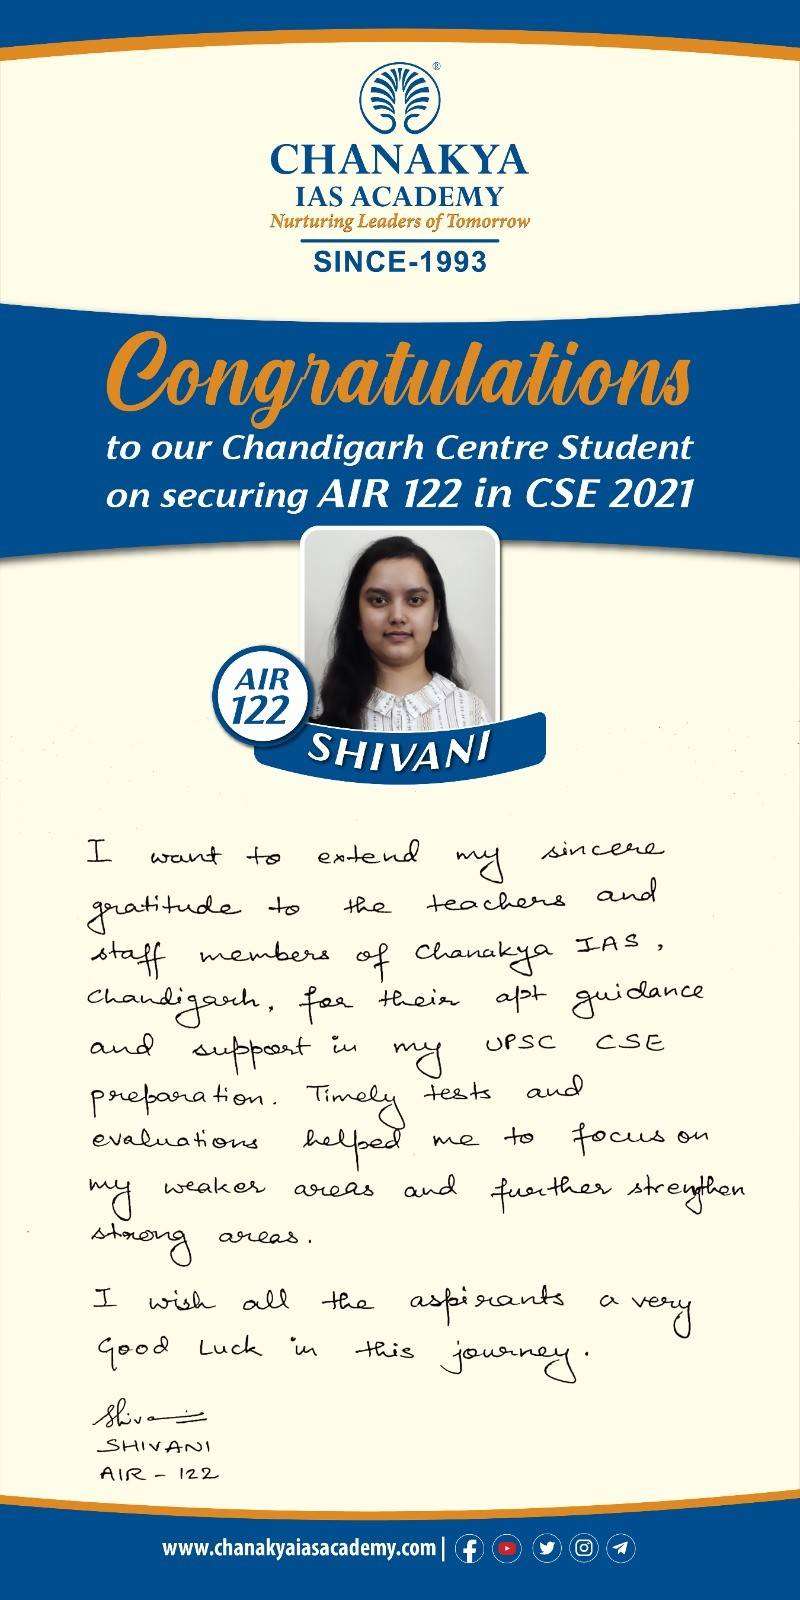 CHANAKYA
IAS ACADEMY
Nurturing Leaders of Tomorrow
SINCE-1993
Congratulations
to our Chandigarh Centre Student
on securing AIR 122 in CSE 2021
AIR
122
SHIVANI
I want to extend my sincere
gratitude to the teachers and
staff members of Chanakya IAS,
Chandigarh, for their apt guidance
and support in my UPSC CSE
preparation. Timely tests and
evaluations helped me to focus on
my weaker areas and further strengthen
strong areas.
I wish all the aspirants a very
Good Luck in this journey.
Shivani
SHIVANI
AIR - 122
www.chanakyaiasacademy.com |